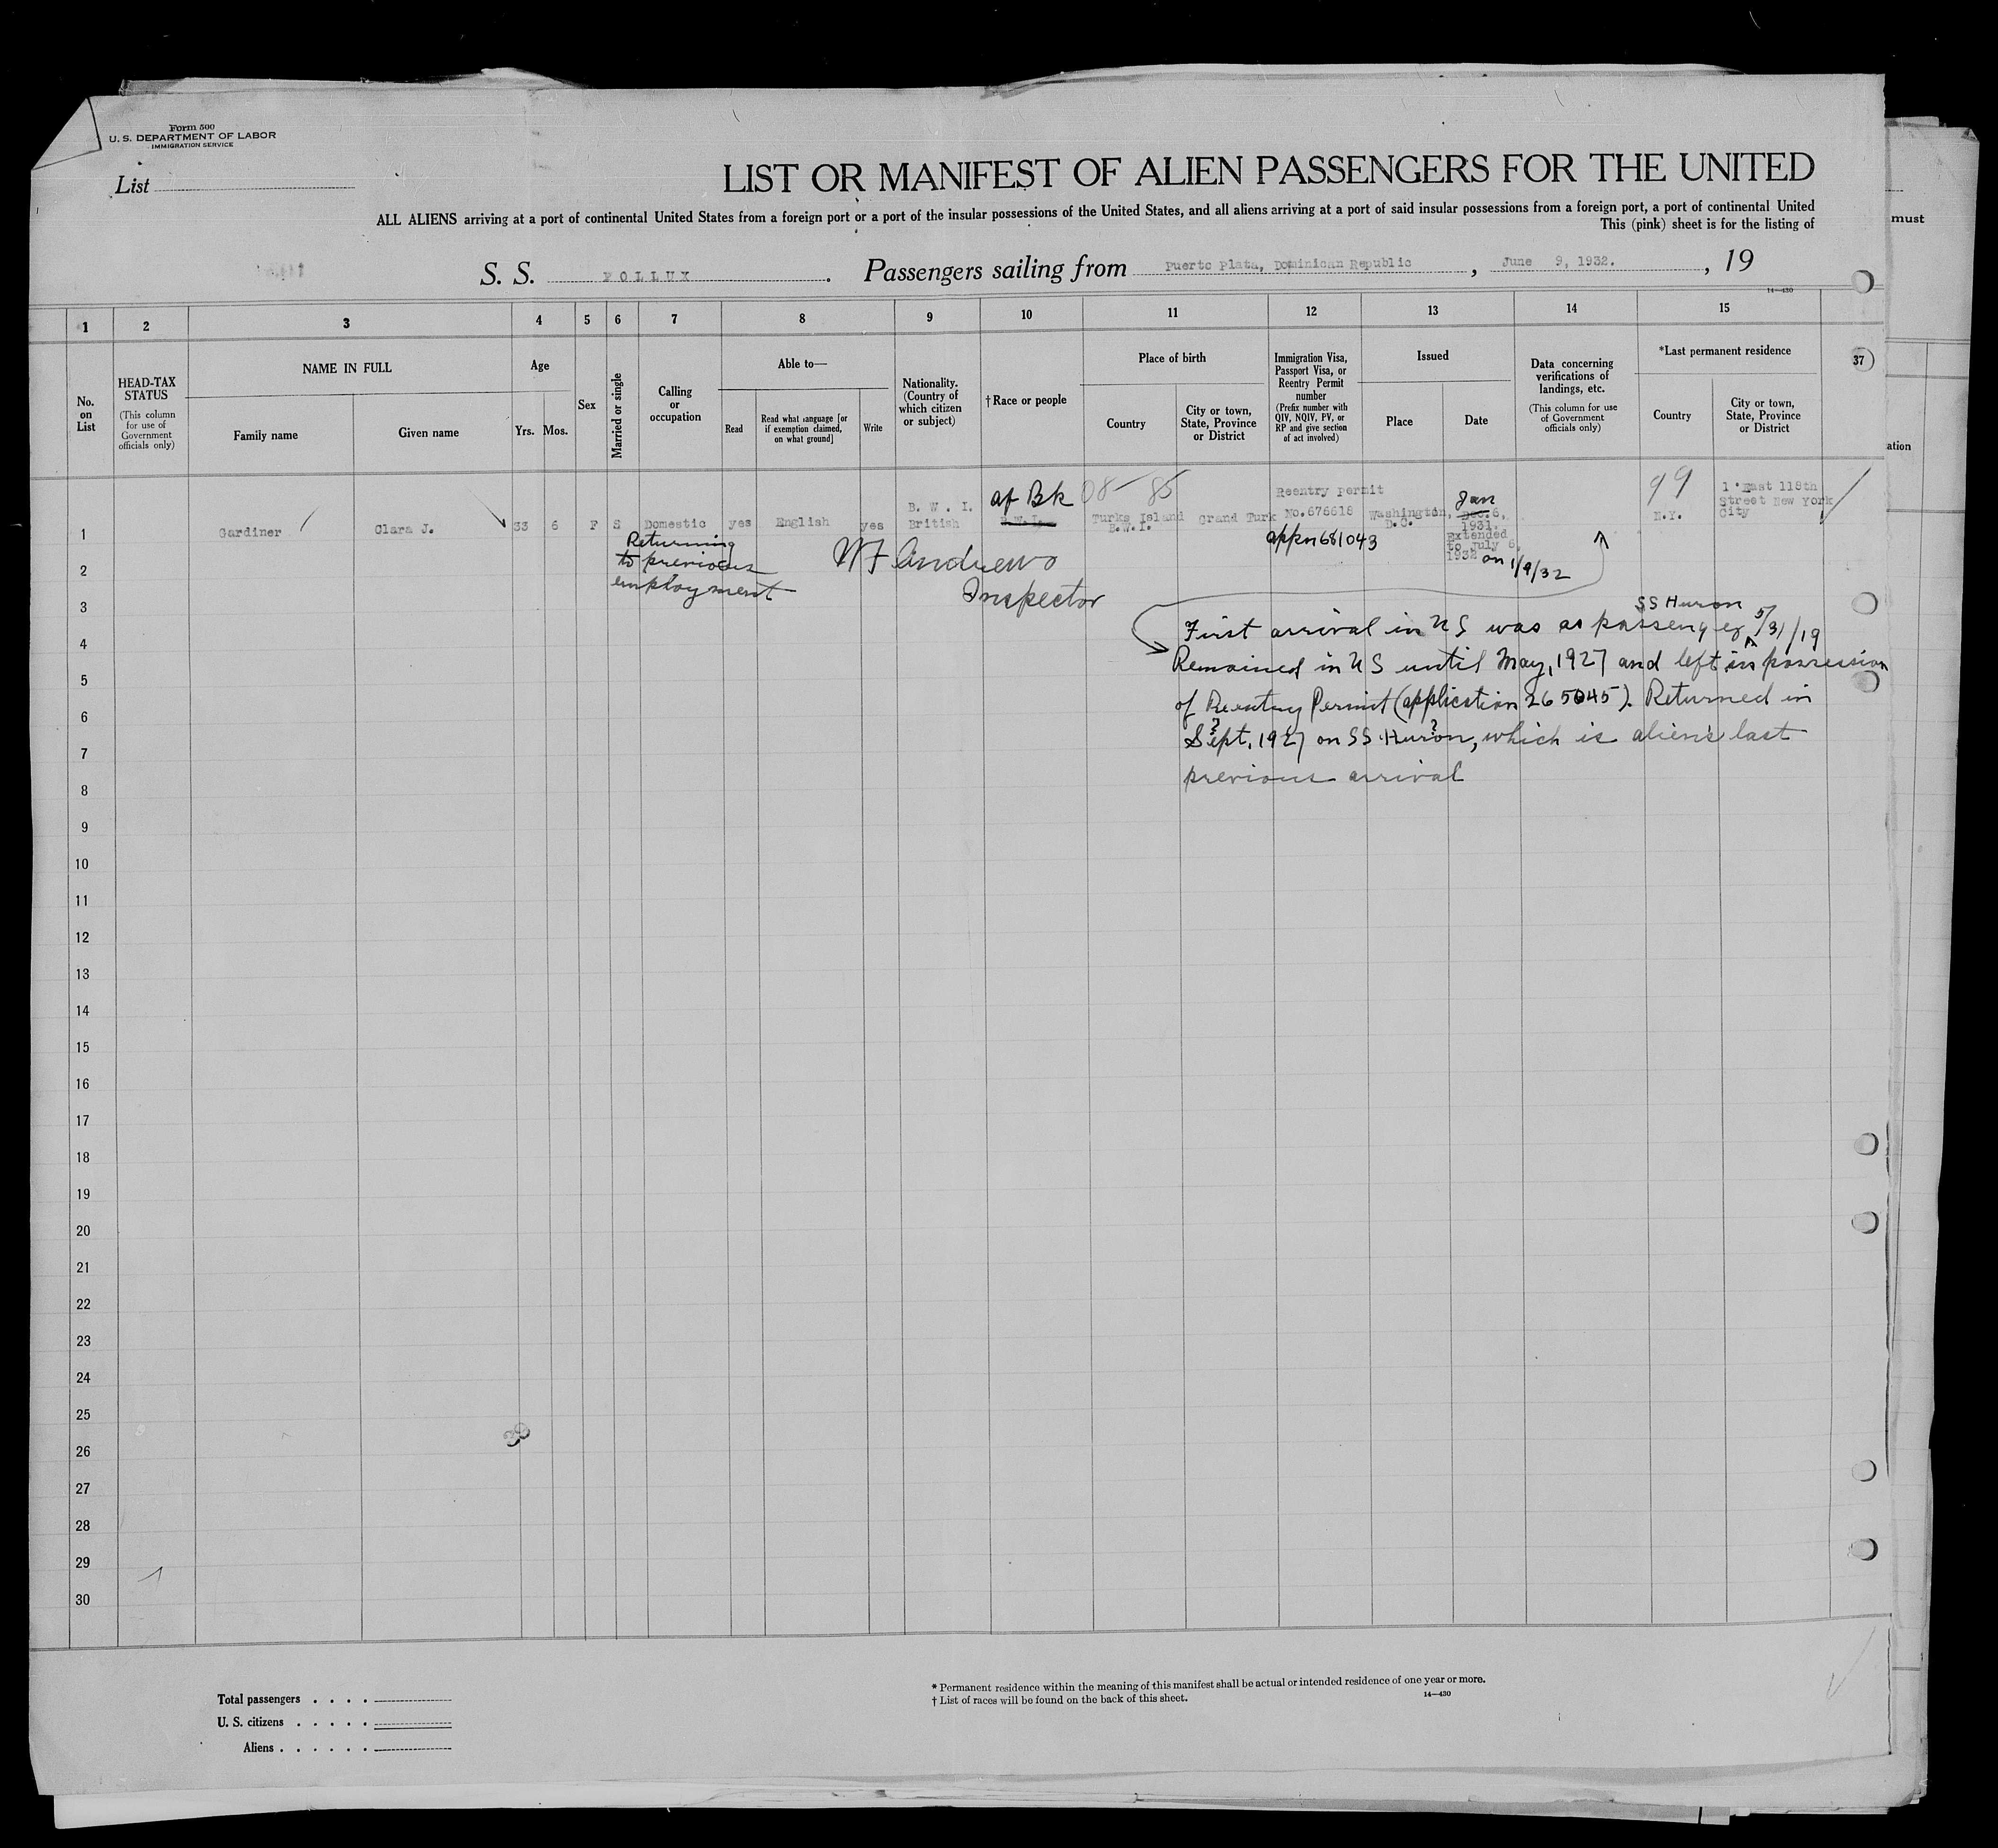 Form 500
U. S. DEPARTMENT OF LABOR
IMMIGRATION SERVICE
List
LIST OR MANIFEST OF ALIEN PASSENGERS FOR THE UNITED
ALL ALIENS arriving at a port of continental United States from a foreign port or a port of the insular possessions of the United States, and all aliens arriving at a port of said insular possessions from a foreign port, a port of continental United
This (pink) sheet is for the listing of
must
S. S. POLLUX. Passengers sailing from Puerto Plata, Dominican Republic, June 9, 1932., 19
14—430
1 2 3 4 5 6 7 8 9 10 11 12 13 14 15
No. on List
HEAD-TAX STATUS
(This column for use of Government officials only)
NAME IN FULL
Family name
Given name
Age
Yrs. Mos.
Sex
Married or single
Calling or occupation
Able to—
Read
Read what language [or if exemption claimed, on what ground]
Write
Nationality. (Country of which citizen or subject)
†Race or people
Place of birth
Country
City or town, State, Province or District
Immigration Visa, Passport Visa, or Reentry Permit number
(Prefix number with QIV, NQIV, PV, or RP and give section of act involved)
Issued
Place
Date
Data concerning verifications of landings, etc.
(This column for use of Government officials only)
*Last permanent residence
Country
City or town, State, Province or District
37
ation
1 Gardiner Clara J. 33 6 F S Domestic yes English yes
B. W. I.
British
af Bk
B.W.I.
08 85
Turks Island
B.W.I.
Grand Turk
Reentry permit
No.676618
appn 681043
Washington,
D.C.
Jan
Dec.6,
1931.
Extended
to July 6,
1932 on 1/9/32
99
N.Y.
1 East 118th
Street New York
City
Returning
to previous
employment
W F Andrews
Inspector
SS Huron
First arrival in US was as passenger 5/31/19
Remained in US until May, 1927 and left in possession
of Reentry Permit (application 265045). Returned in
? ?
Sept. 1927 on SS Huron, which is alien's last
previous arrival
2
3
4
5
6
7
8
9
10
11
12
13
14
15
16
17
18
19
20
21
22
23
24
25
26
27
28
29
30
Total passengers . . . .
U. S. citizens . . . . .
Aliens . . . . . .
* Permanent residence within the meaning of this manifest shall be actual or intended residence of one year or more.
† List of races will be found on the back of this sheet.
14—430